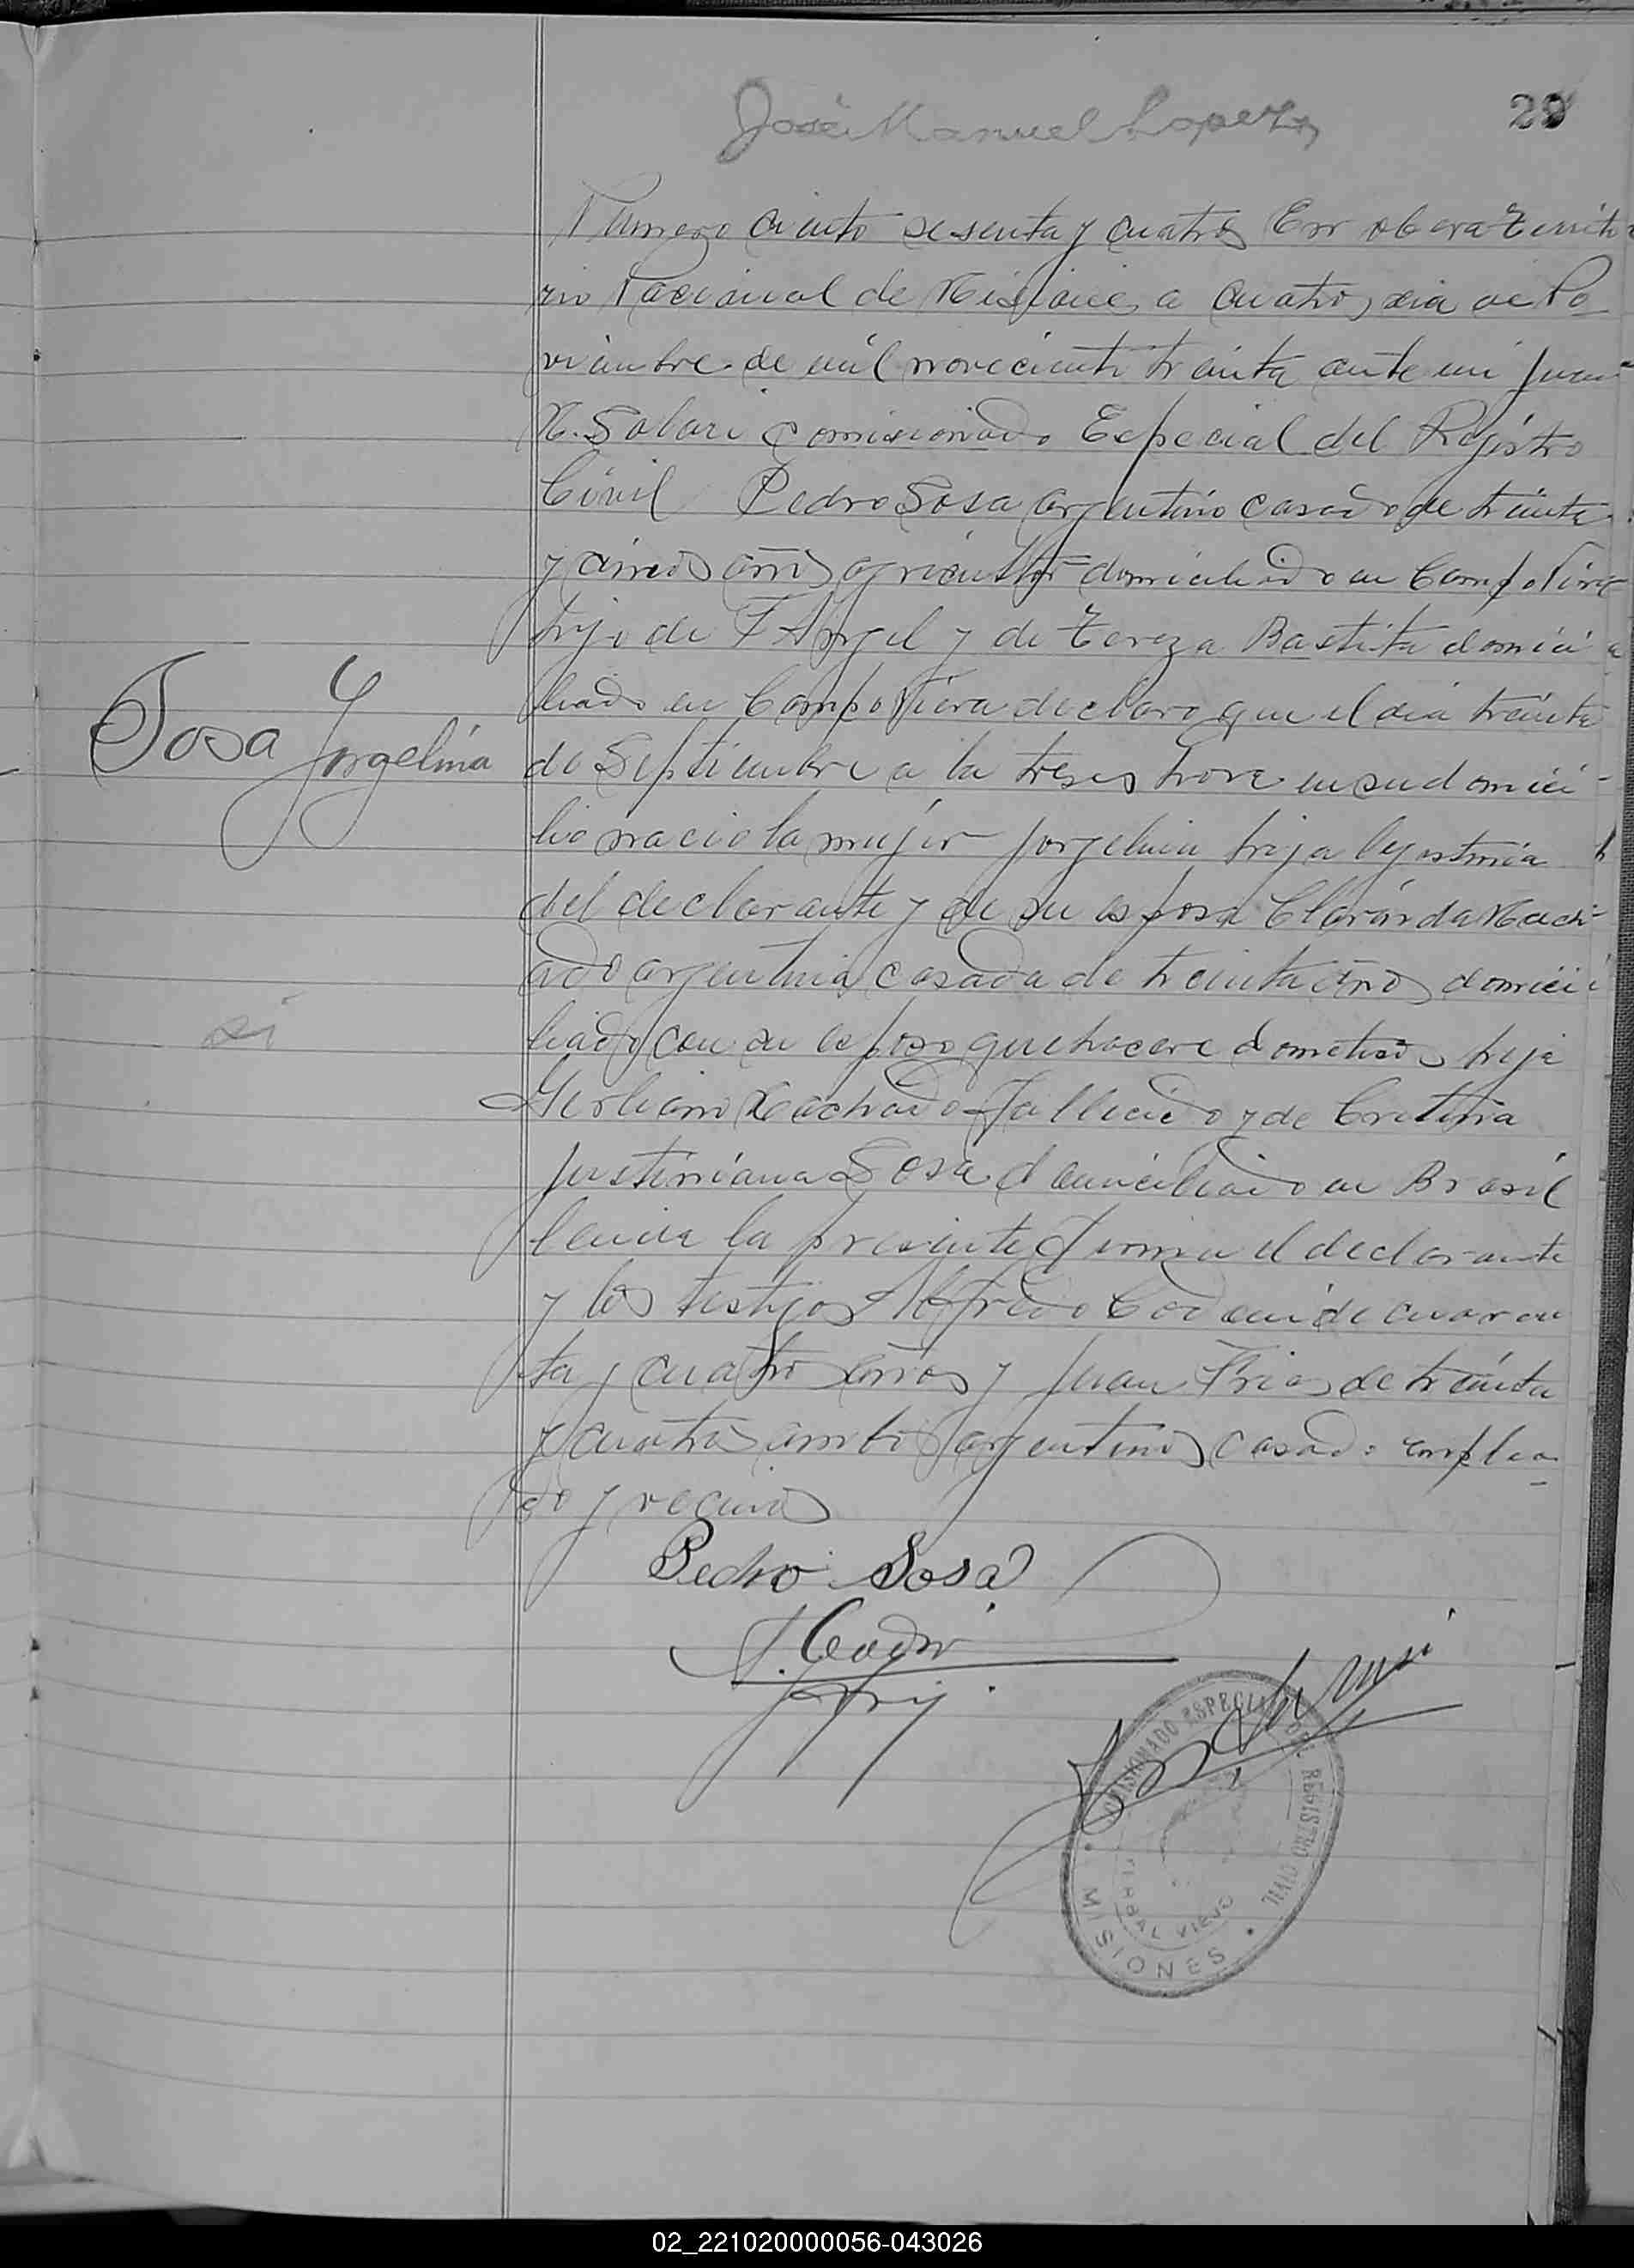 José Manuel Lopez
29
Numero ciento sesenta y cuatro En Obera Territo
rio Nacional de Misiones a cuatro dia de No
viembre de mil novecientos treinta ante mi Juan
M. Solari Comisionado Especial del Registro
Civil Pedro Sosa argentino casado de treinta
y cinco años agricultor domiciliado en Campo Viera
hijo de Angel y de Tereza Bastita domici
liado en Campo Viera declaro que el dia treinta
de Septiembre a la tres hora en su domici
Sosa Jorgelina
lio nacio la mujer Jorgelina hija legitima
del declarante y de su esposa Clarinda Mach
ado argentina casada de treinta años domici
liado con su esposo quehacere domestico hija
si
Machado fallecido y de Cristina
Justiniana Sosa domiciliado en Brasil
leida la presente firma el declarante
y los testigos Alfredo de cuaren
ta y cuatro años y Juan Frias de treinta
y cuatro ambos argentinos casado emplea
do y vecinos
Pedro Sosa
COMISIONADO ESPECIAL DEL REGISTRO CIVIL
YERBAL VIEJO
MISIONES
02_221020000056-043026